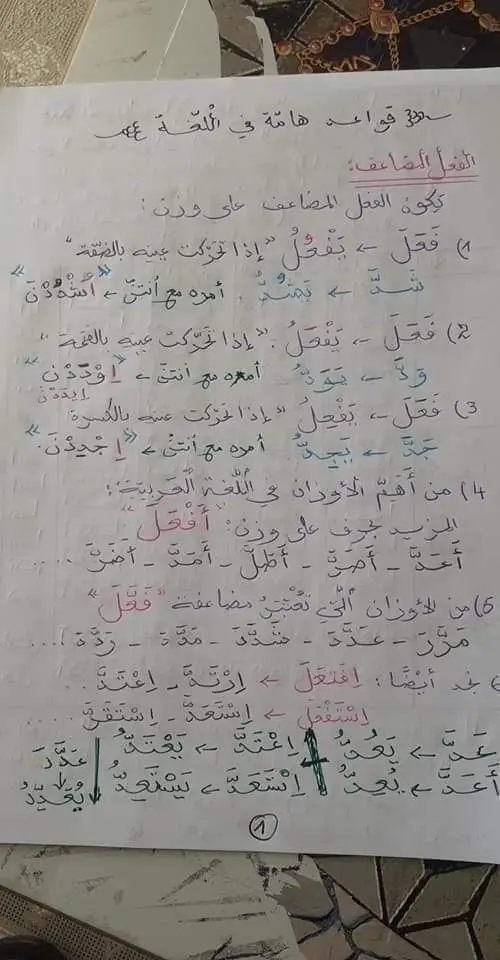 قواعد هامّة في اُللّغة
الفعل المضاعف:
يكون الفعل المضاعف على وزن:
1) فَعَلَ ← يَفْعُلُ "إذا تحرّكت عينه بالضمّة"
شَدَّ ← يَشُدُّ. أمره مع أنتنّ ← "اُشْدُدْنَ"
2) فَعَلَ ← يَفْعَلُ. "إذا تحرّكت عينه بالفتحة"
وَدَّ ← يَوَدُّ أمره مع أنتنّ ← "اِوْدَدْنَ"
اِيدَدْنَ
3) فَعَلَ ← يَفْعِلُ "إذا تحرّكت عينه بالكسرة"
جَدَّ ← يَجِدُّ. أمره مع أنتنّ ← "اِجْدِدْنَ."
4) من أَهَمِّ الأوزان في اُللّغة اُلْعَرَبِيَّة:
المزيد بحرف على وزن: "أَفْعَلَ"
أَعَدَّ - أَصَرَّ - أَطَلَّ - أَمَدَّ - أَضَرَّ ....
5) من الأوزان اُلَّتي تُعْتَبَرُ مضاعفة "فَعَّلَ"
مَرَّرَ - عَدَّدَ - شَدَّدَ - مَدَّدَ - رَدَّدَ ....
نجد أيْضًا: اِفْتَعَلَ ← اِرْتَدَّ - اِعْتَدَّ..
اِسْتَفْعَلَ ← اِسْتَعَدَّ - اِسْتَقَرَّ ....
عَدَّ ← يَعُدُّ اِعْتَدَّ ← يَعْتَدُّ عَدَّدَ
أَعَدَّ ← يُعِدُّ اِسْتَعَدَّ ← يَسْتَعِدُّ يُعَدِّدُ
1